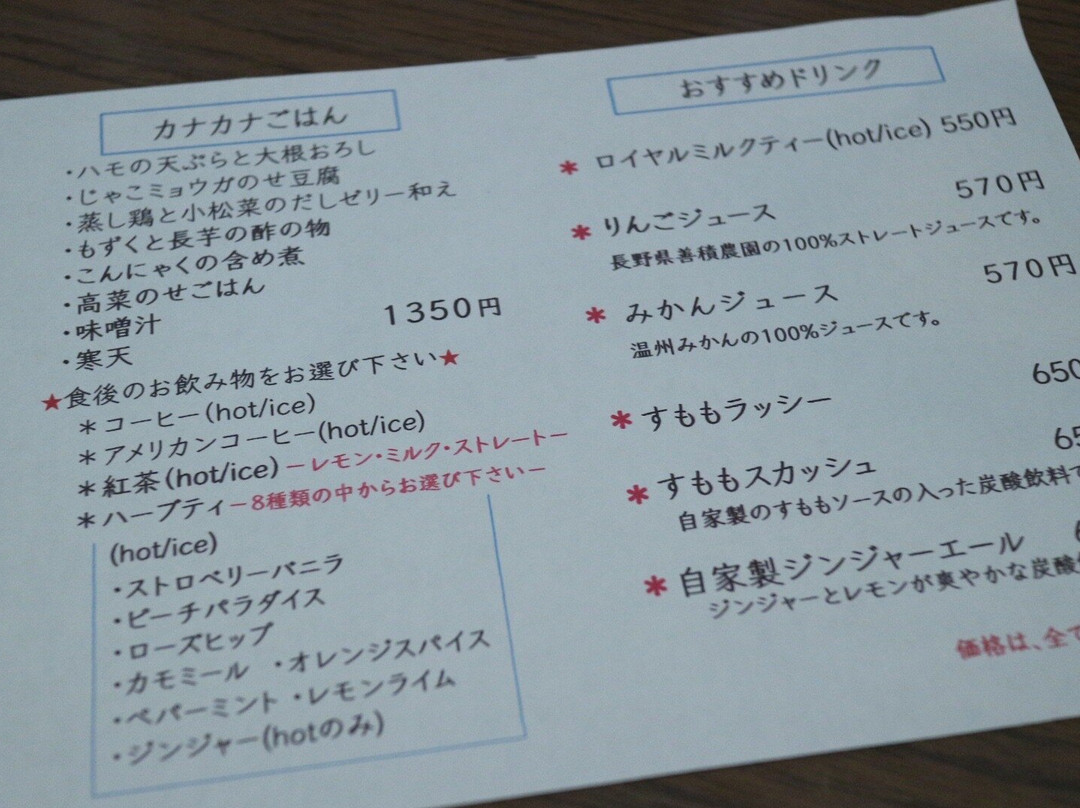 カナカナごはん
・ハモの天ぷらと大根おろし
・じゃこミョウガのせ豆腐
・蒸し鶏と小松菜のだしゼリー和え
・もずくと長芋の酢の物
・こんにゃくの含め煮
・高菜のせごはん
・味噌汁 1350円
・寒天
★食後のお飲み物をお選び下さい★
＊コーヒー(hot/ice)
＊アメリカンコーヒー(hot/ice)
＊紅茶(hot/ice)－レモン・ミルク・ストレート－
＊ハーブティ－8種類の中からお選び下さい－
(hot/ice)
・ストロベリーバニラ
・ピーチパラダイス
・ローズヒップ
・カモミール ・オレンジスパイス
・ペパーミント ・レモンライム
・ジンジャー(hotのみ)
おすすめドリンク
＊ ロイヤルミルクティー(hot/ice) 550円
＊ りんごジュース 570円
長野県善積農園の100%ストレートジュースです。
＊ みかんジュース 570円
温州みかんの100%ジュースです。
＊ すももラッシー 650
＊ すももスカッシュ 65
自家製のすももソースの入った炭酸飲料で
＊ 自家製ジンジャーエール
ジンジャーとレモンが爽やかな炭酸
価格は、全て